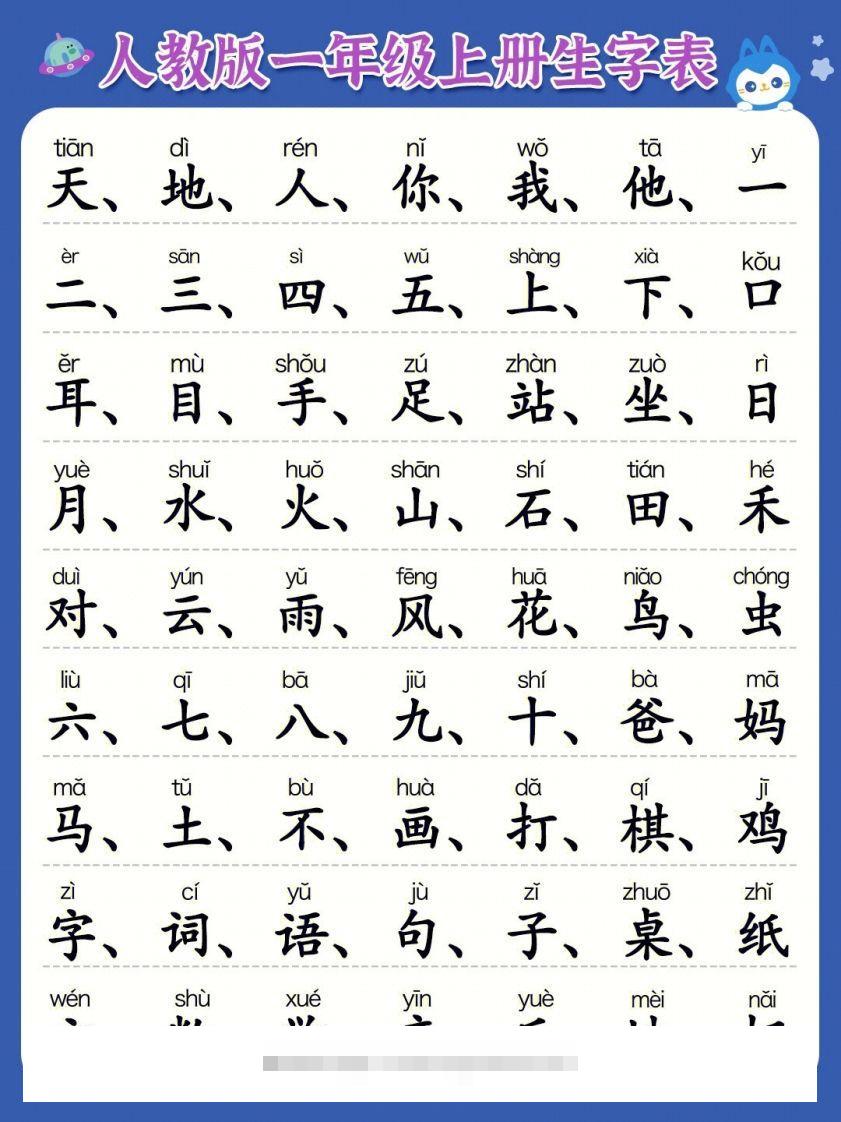 人教版一年级上册生字表
tiān dì rén nǐ wǒ tā yī
天、地、人、你、我、他、一
èr sān sì wǔ shàng xià kǒu
二、三、四、五、上、下、口
ěr mù shǒu zú zhàn zuò rì
耳、目、手、足、站、坐、日
yuè shuǐ huǒ shān shí tián hé
月、水、火、山、石、田、禾
duì yún yǔ fēng huā niǎo chóng
对、云、雨、风、花、鸟、虫
liù qī bā jiǔ shí bà mā
六、七、八、九、十、爸、妈
mǎ tǔ bù huà dǎ qí jī
马、土、不、画、打、棋、鸡
zì cí yǔ jù zǐ zhuō zhǐ
字、词、语、句、子、桌、纸
wén shù xué yīn yuè mèi nǎi